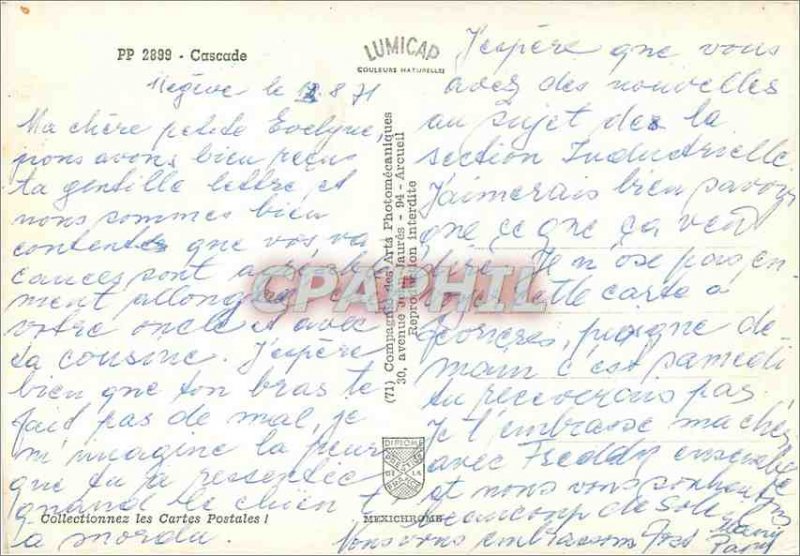 PP 2899 - Cascade
LUMICAP
COULEURS NATURELLES
Megève le 8 71
Ma chère petite Evelyne,
nous avons bien reçus
ta gentille lettre et
nous sommes bien
contents que vos va
cances sont
ment allongées
votre oncle et avec
ta cousine. J'espère
bien que ton bras te
fait pas de mal, je
m'imagine la peur
que tu a ressentie
quand le chien t
a mordu.
Collectionnez les Cartes Postales !
(71) Compagnie des Arts Photomécaniques
30, avenue Jean Jaurès - 94 - Arcueil
Reproduction interdite
CPAPHIL
DIPLOME
PRESTIGE
DE LA
FRANCE
MEXICHROME
J'espère que vous
avez des nouvelles
au sujet des la
section Industrielle.
J'aimerais bien savoir
que ce que ça veut
dire. Je n'ose pas en-
voyer cette carte à
de-
main c'est samedi
tu recevrais pas.
Je t'embrasse ma chère
avec Freddy ensemble
et nous vous souhaitons
beaucoup de Soleil
Nous vous embrassons